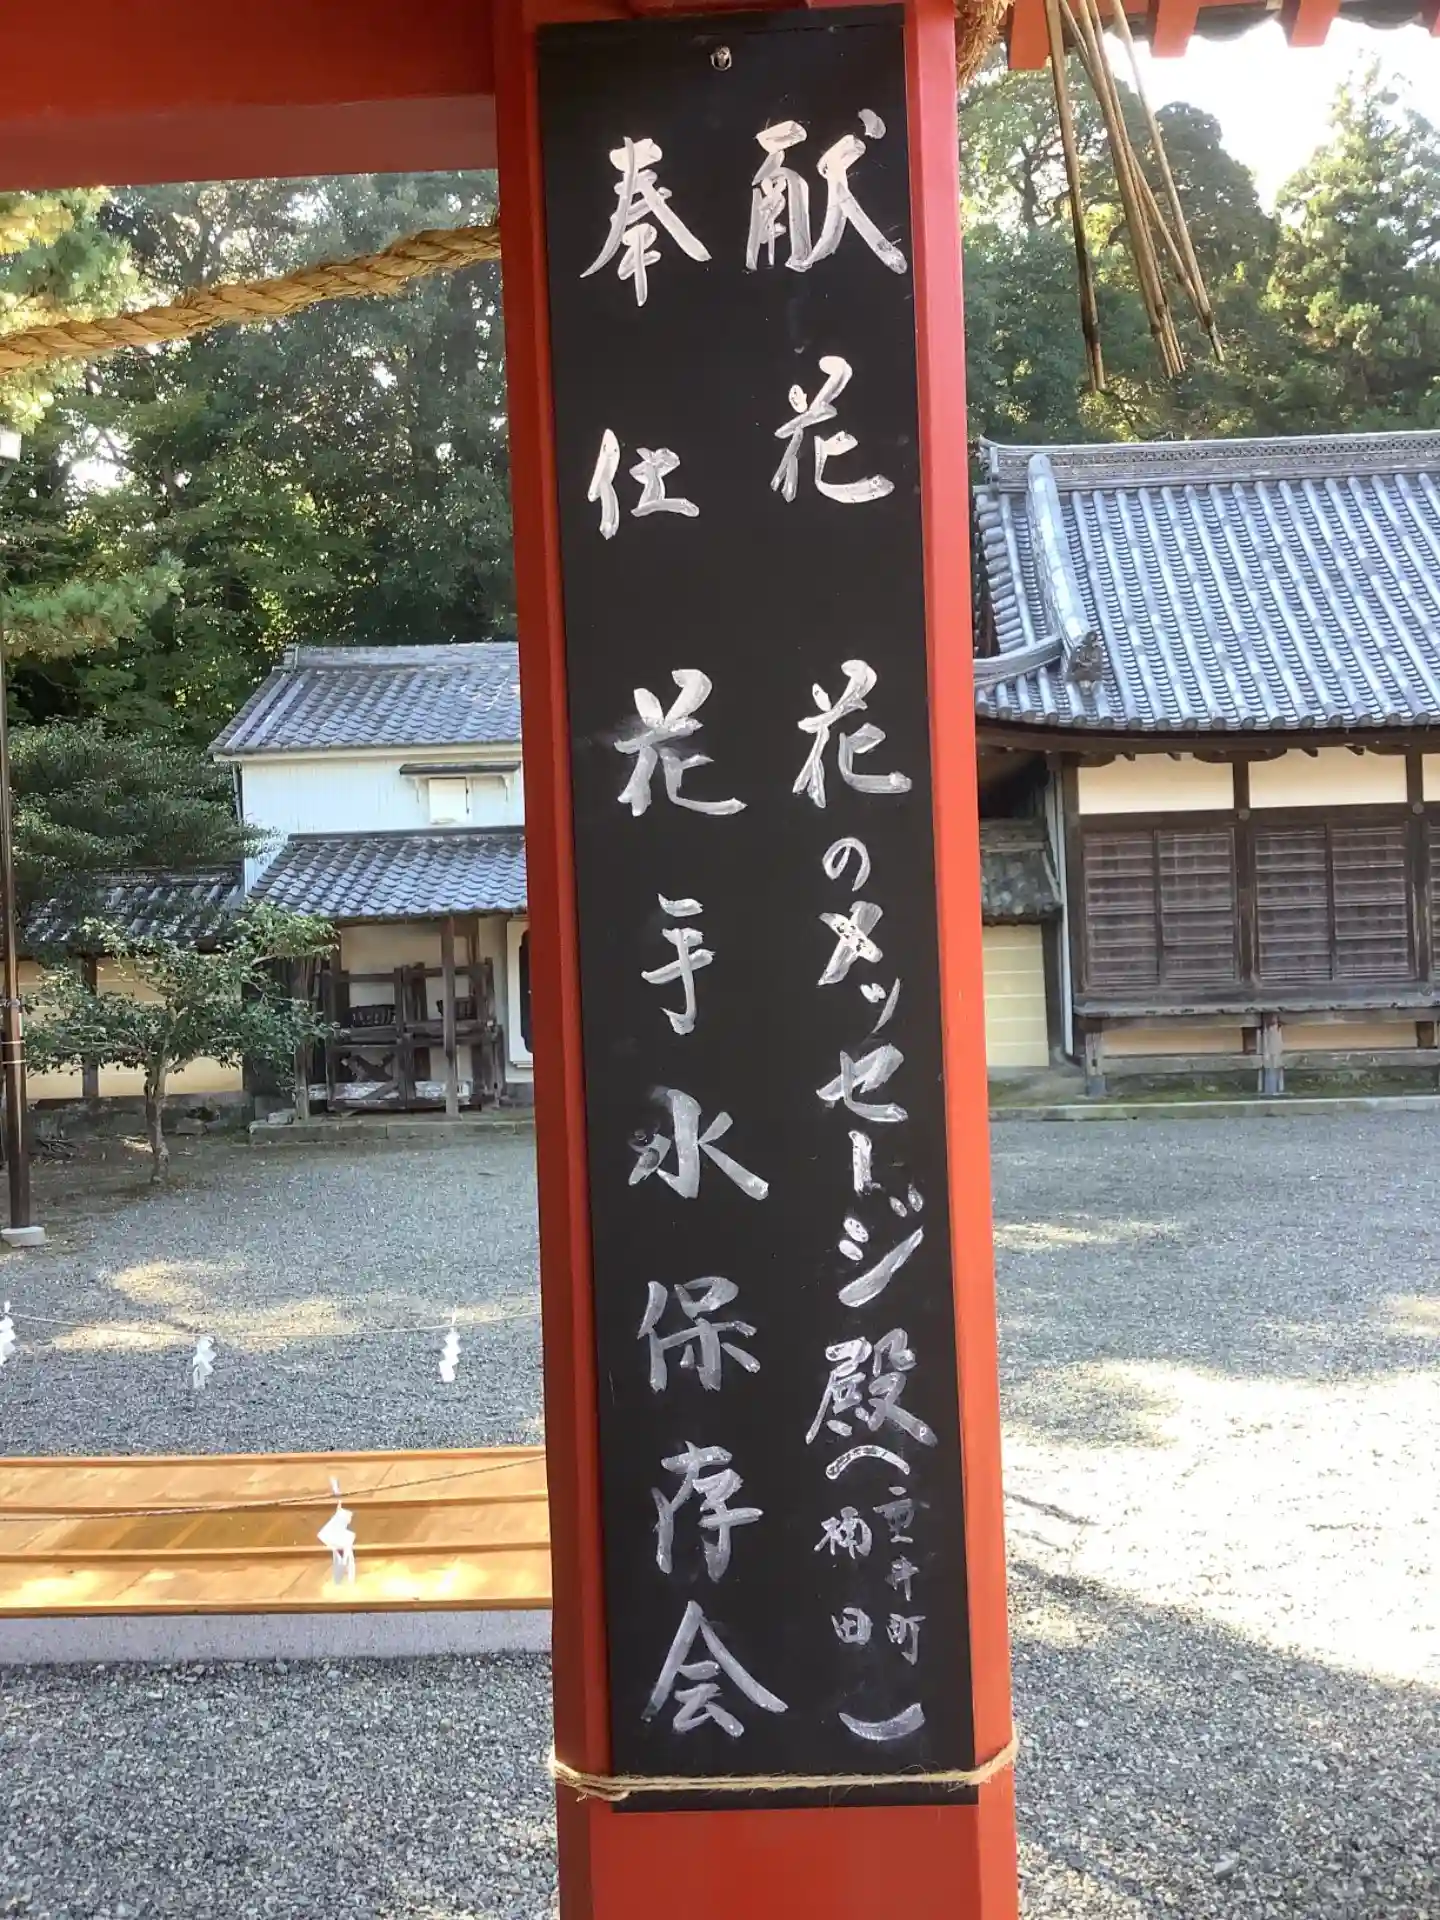 献花 花のメッセージ殿(亜井町 楠田)
奉仕 花手水保存会